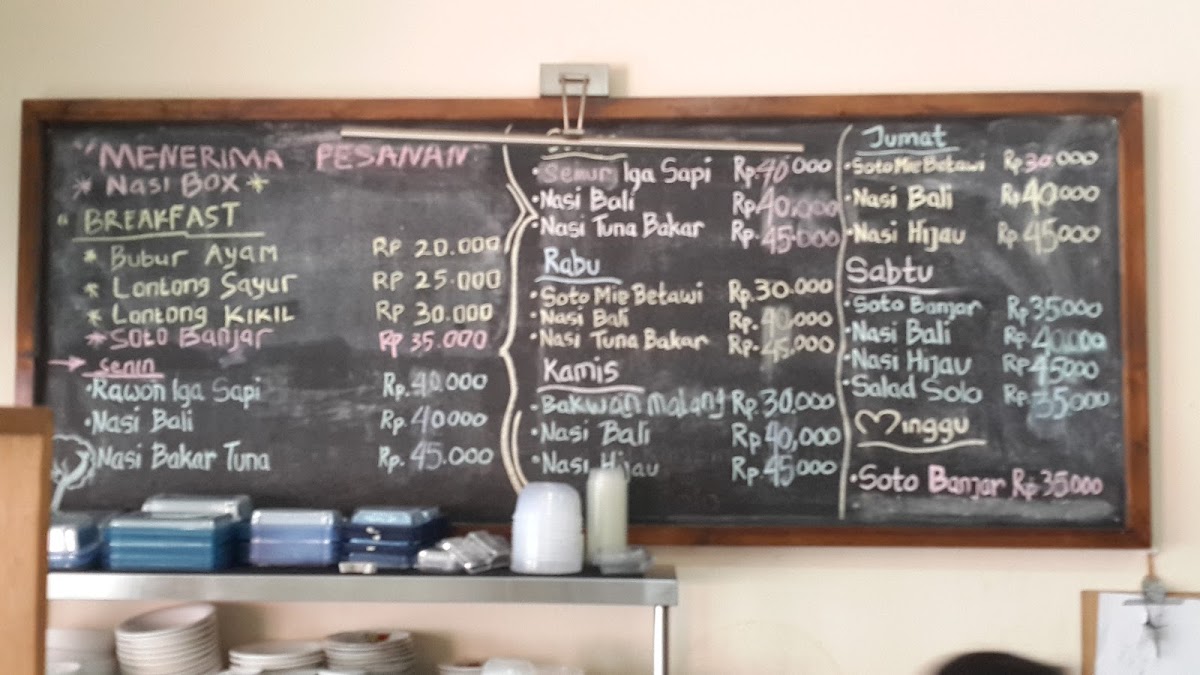 "MENERIMA PESANAN
* Nasi BOX *
" BREAKFAST
* Bubur Ayam RP 20.000
* Lontong Sayur RP 25.000
* Lontong KIKIL RP 30.000
* Soto Banjar RP 35.000
→ senin
• Rawon Iga Sapi Rp. 40.000
• Nasi Bali Rp. 40000
• Nasi Bakar Tuna Rp. 45.000
• Semur Iga Sapi Rp. 40000
• Nasi Bali Rp. 40.000
• Nasi Tuna Bakar Rp. 45.000
Rabu
• Soto Mie Betawi Rp. 30.000
• Nasi Bali Rp. 40,000
• Nasi Tuna Bakar Rp. 45.000
Kamis
• Bakwan malang Rp. 30.000
• Nasi Bali Rp. 40,000
• Nasi Hijau Rp. 45000
Jumat
• Soto Mie Betawi Rp. 30.000
• Nasi Bali Rp. 40000
• Nasi Hijau Rp 45000
Sabtu
• Soto Banjar Rp 35000
• Nasi Bali Rp. 40000
• Nasi Hijau Rp 45000
• Salad Solo Rp. 35000
Minggu
• Soto Banjar Rp. 35.000